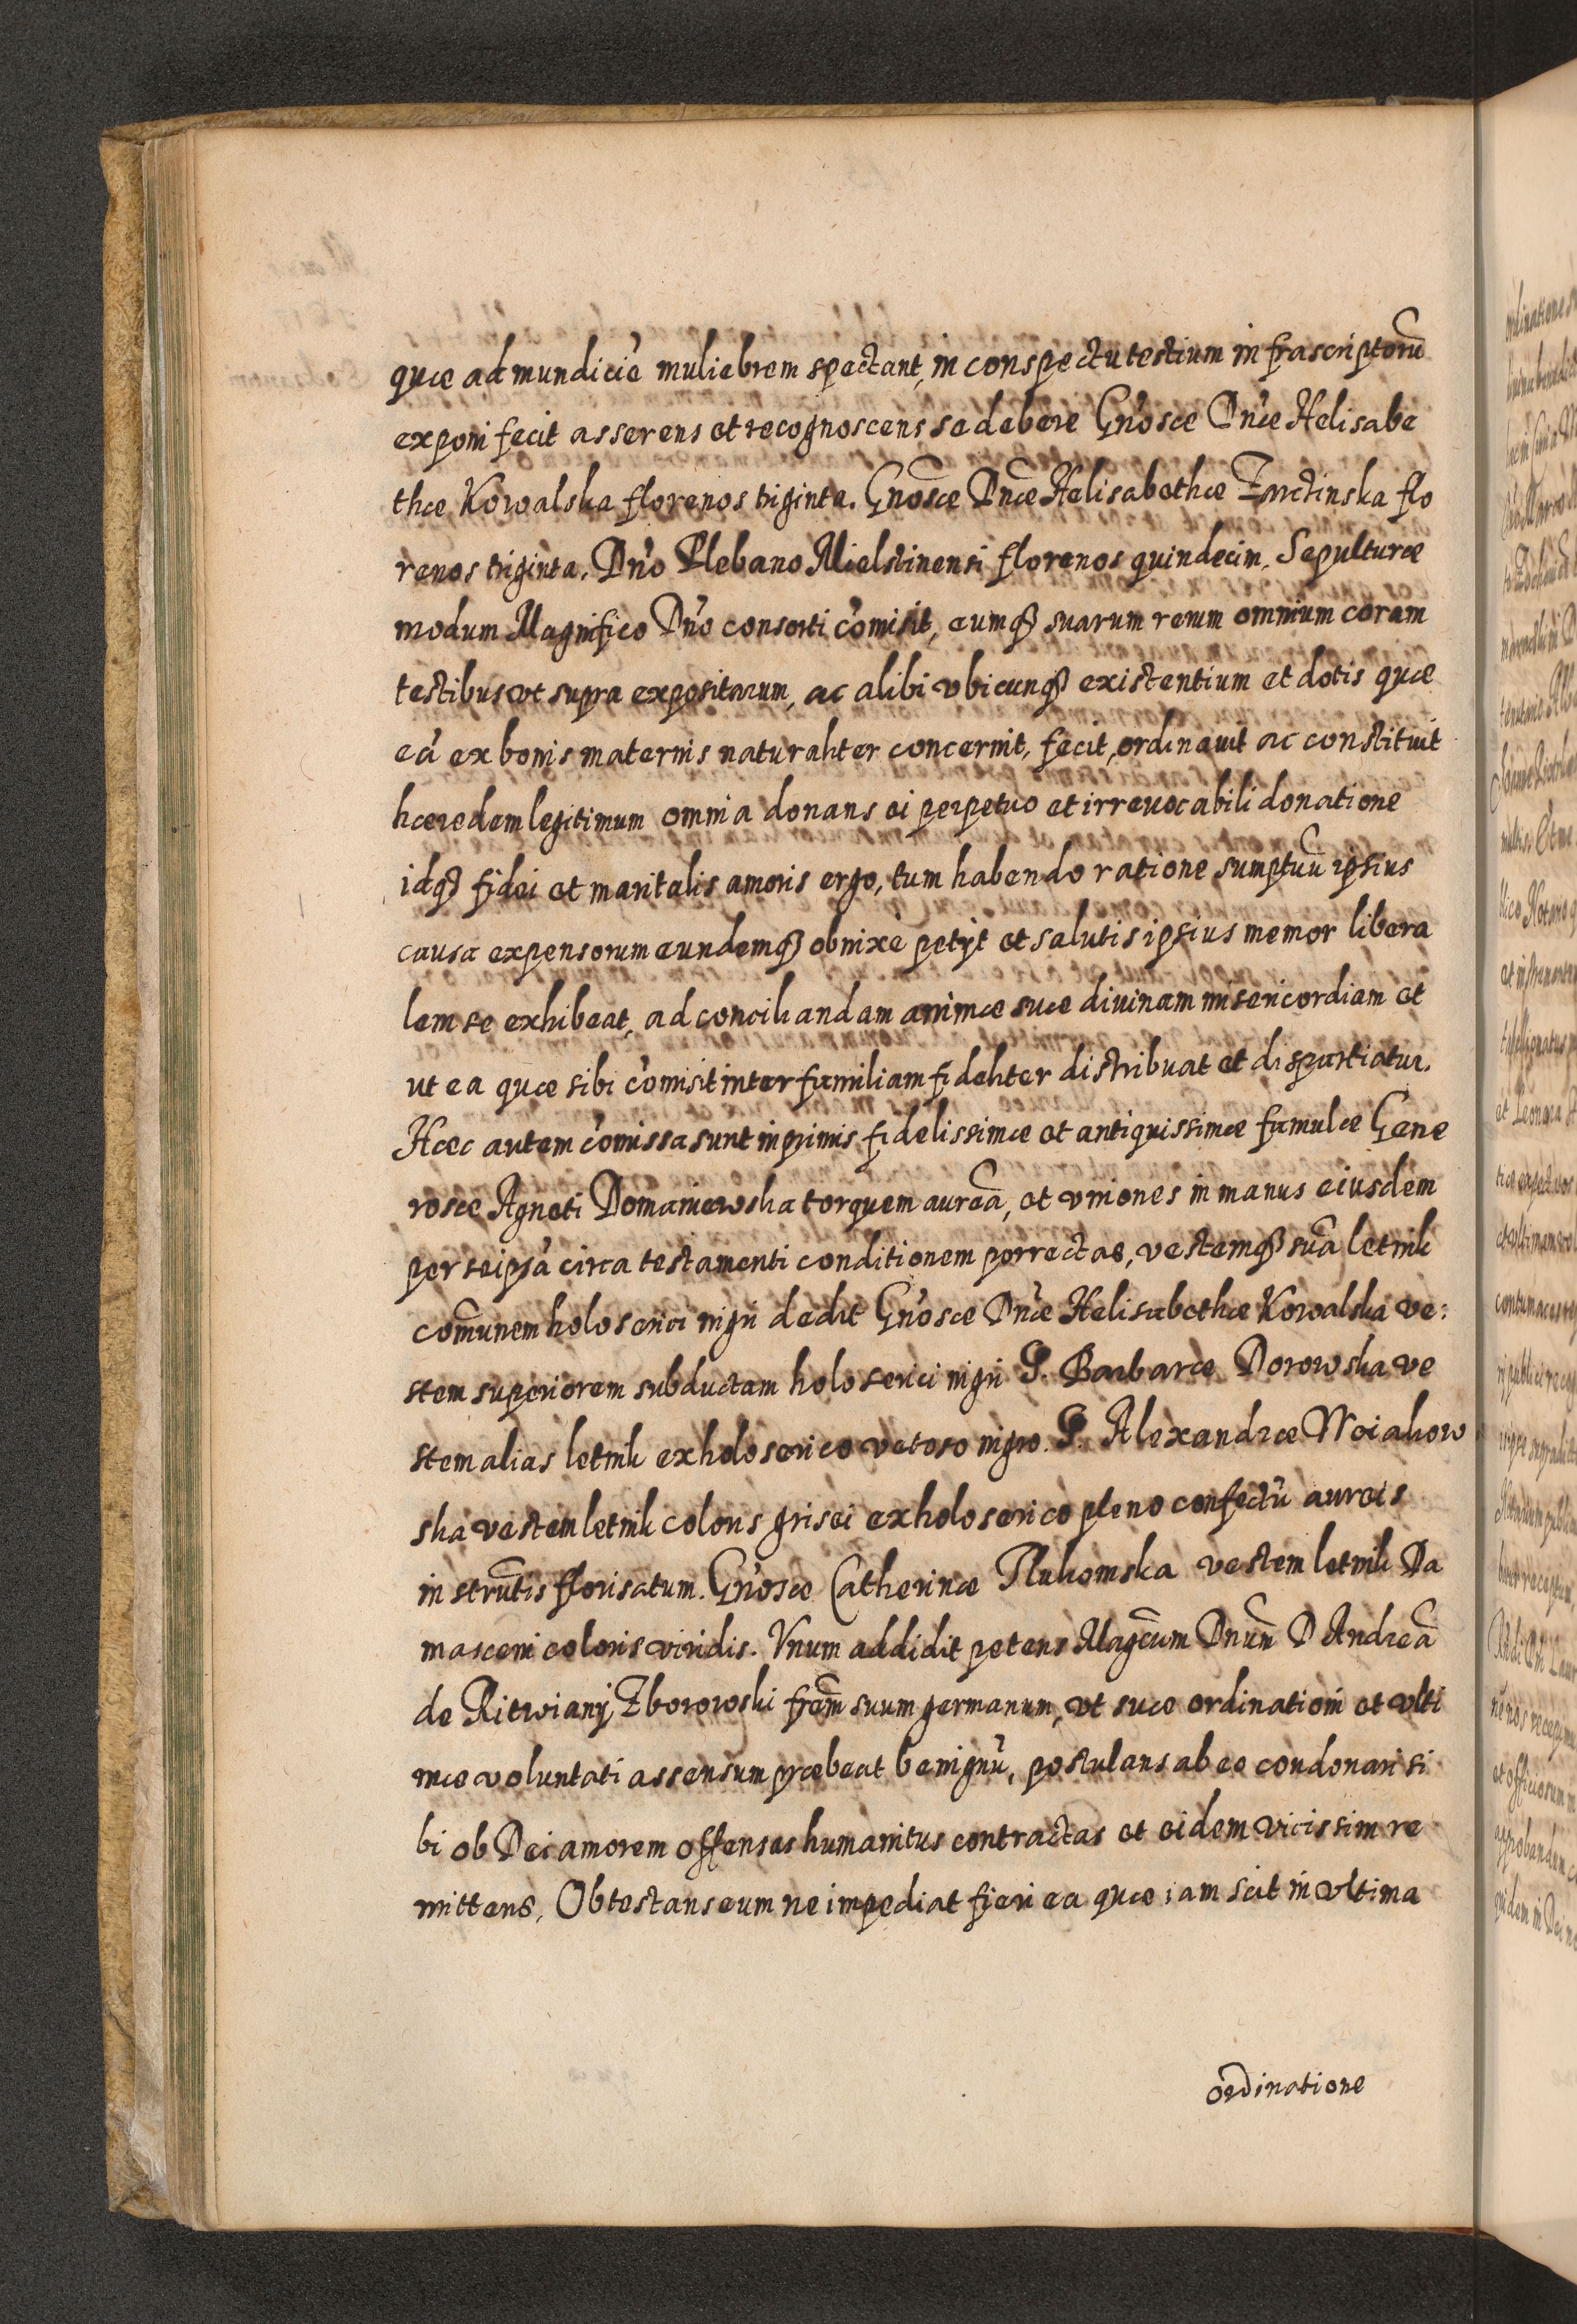 quæ ad mundiciē muliebrem spectant, in conspectu testium infrascriptorū
exponi fecit asserens et recognoscens se debere Gn̄osæ Dn̄æ Helisabe
thæ Kowalska florenos triginta. Gn̄osæ Dn̄æ Helisabethæ Zarctinska flo
renos triginta. Dn̄o Plebano Mielstinensi florenos quindecim. Sepulturæ
modum Magnifico Dn̄o consorti com̄isit, eumq3 suarum rerum omnium coram
testibus ut supra expositarum, ac alibi vbicunq3 existentium et dotis quæ
eā ex bonis maternis naturaliter concernit, fecit, ordinauit ac constituit
hæredem legitimum omnia donans ei perpetuo et irreuocabili donatione
idq3 fidei et maritalis amoris ergo, tum habendo ratione sumptuū ipsius
causa expensorum eundemq3 obnixè petijt et salutis ipsius memor libera
lem se exhibeat, ad conciliandam animæ suæ diuinam misericordiam et
ut ea quæ sibi com̄isit inter familiam fideliter distribuat et dispartiatur.
Hæc autem com̄issa sunt inprimis fidelissimæ et antiquissimæ famulæ Gene
rosæ Agneti Domaniewska torquem aureā, et vniones in manus eiusdem
per seipsā circa testamenti conditionem porrectas, vestemq3 suā letnik
com̄unem holoserici nigri dedit Gn̄osæ Dn̄æ Helisabethæ Kowalska ve:
stem superiorem subductam holoserici nigri G. Barbaræ Dorowska ve
stem alias letnik ex holoserico vetoso nigro. G. Alexandræ Woiakow
ska vestem letnik coloris grisei ex holoserico pleno confectū aureis
instrum̄tis florisatum. Gn̄osæ Catherinæ Tlukomska vestem letnik Da
masceni coloris viridis. Vnum addidit petens Maḡcum Dnūm D Andreā
de Ritwiany Zborowski fr̄em suum germanum, vt suæ ordinationi et vlti
mæ voluntati assensum præbeat benignū, postulans ab eo condonari si
bi ob Dei amorem offensas humanitus contractas et eidem vicissim re
mittens. Obtestans eum ne impediat fieri ea quæ iam scit in vltima
ordinatione